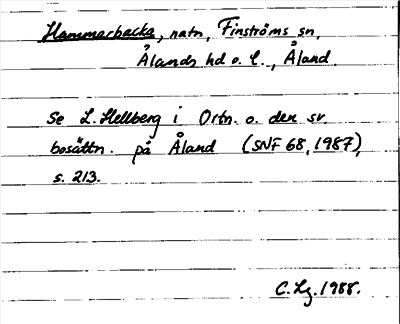 Hammarbacka, natn, Finströms sn,
Ålands hd o. l., Åland.
Se L. Hellberg i Ortn. o. den sv.
bosättn. på Åland (SNF 68, 1987),
s. 213.
C. Lg. 1988.